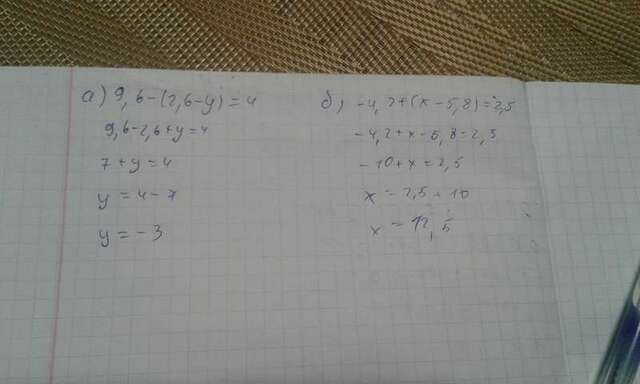 а) 9,6-(2,6-y)=4
9,6-2,6+y=4
7+y=4
y=4-7
y=-3
б) -4,2+(x-5,8)=2,5
-4,2+x-5,8=2,5
-10+x=2,5
x=2,5+10
x=12,5